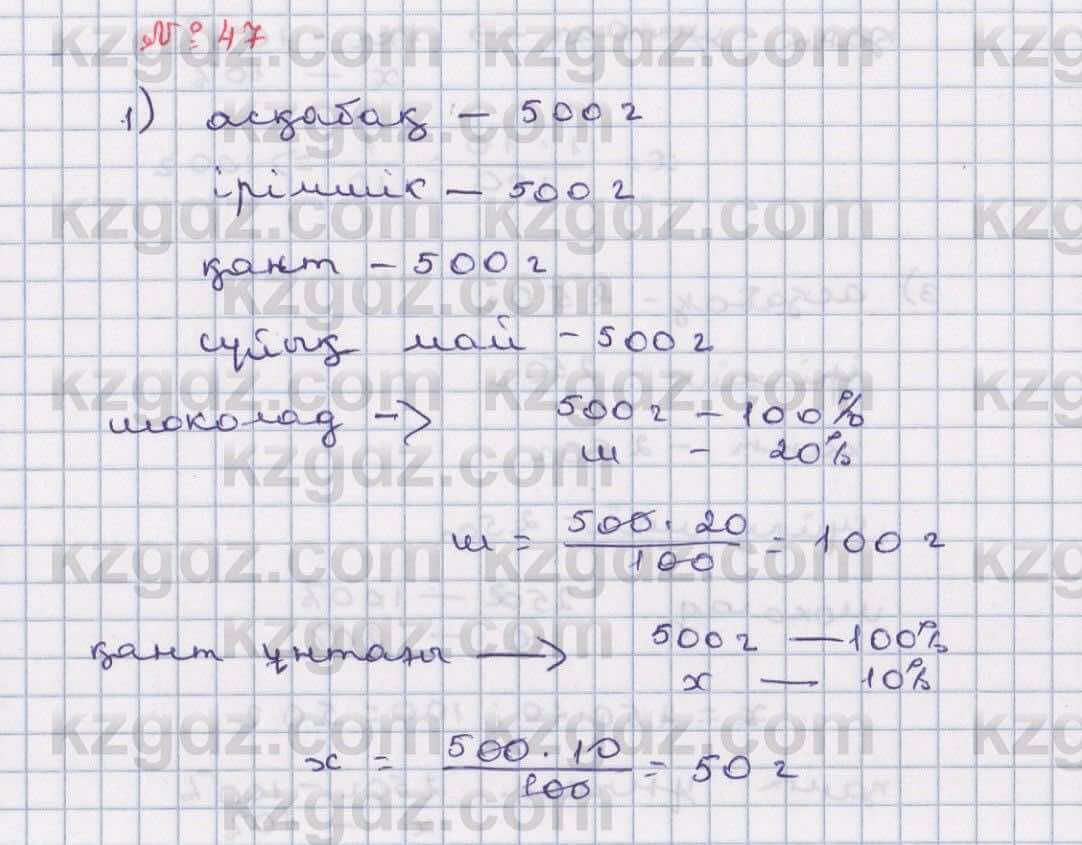 № 47
1) асқабақ - 500 г
ірімшік - 500 г
қант - 500 г
сұйық май - 500 г
шоколад -> 500 г - 100%
ш - 20%
ш = 500 · 20 / 100 = 100 г
қант ұнтағы -> 500 г - 100%
х - 10%
х = 500 · 10 / 100 = 50 г
kzgdz.com